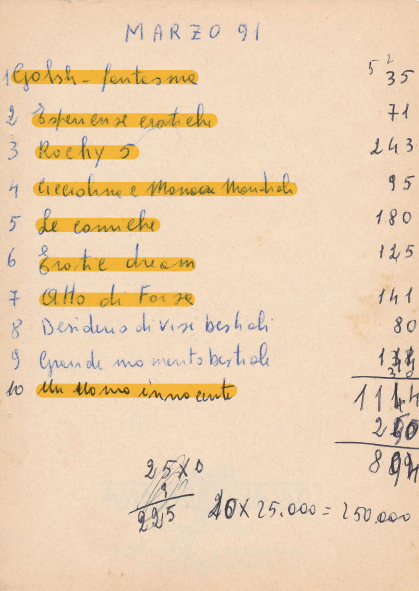 MARZO 91
5 2
1 Golsh - fantasma 35
2 Esperiense erotiche 71
3 Rochy 5 243
4 Cicciolina e Moana Mondiali 95
5 Le comiche 180
6 Erotic dream 125
7 Atto di Forsa 141
8 Desiderio di visi bestiali 80
9 Grande momento bestiale
10 Un Uomo innocente
25 x
225
10 x 25.000 = 250.000